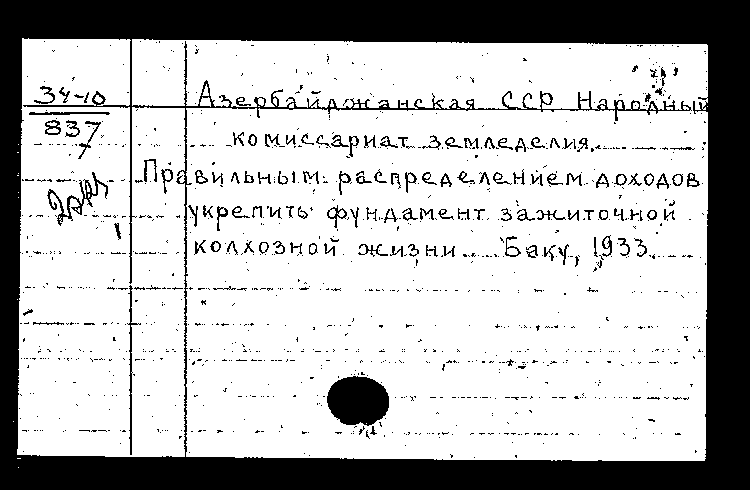 34-10
837
7
2 экз.
Азербайджанская ССР Народный
комиссариат земледелия.
Правильным распределением доходов
укрепить фундамент зажиточной
колхозной жизни. Баку, 1933.